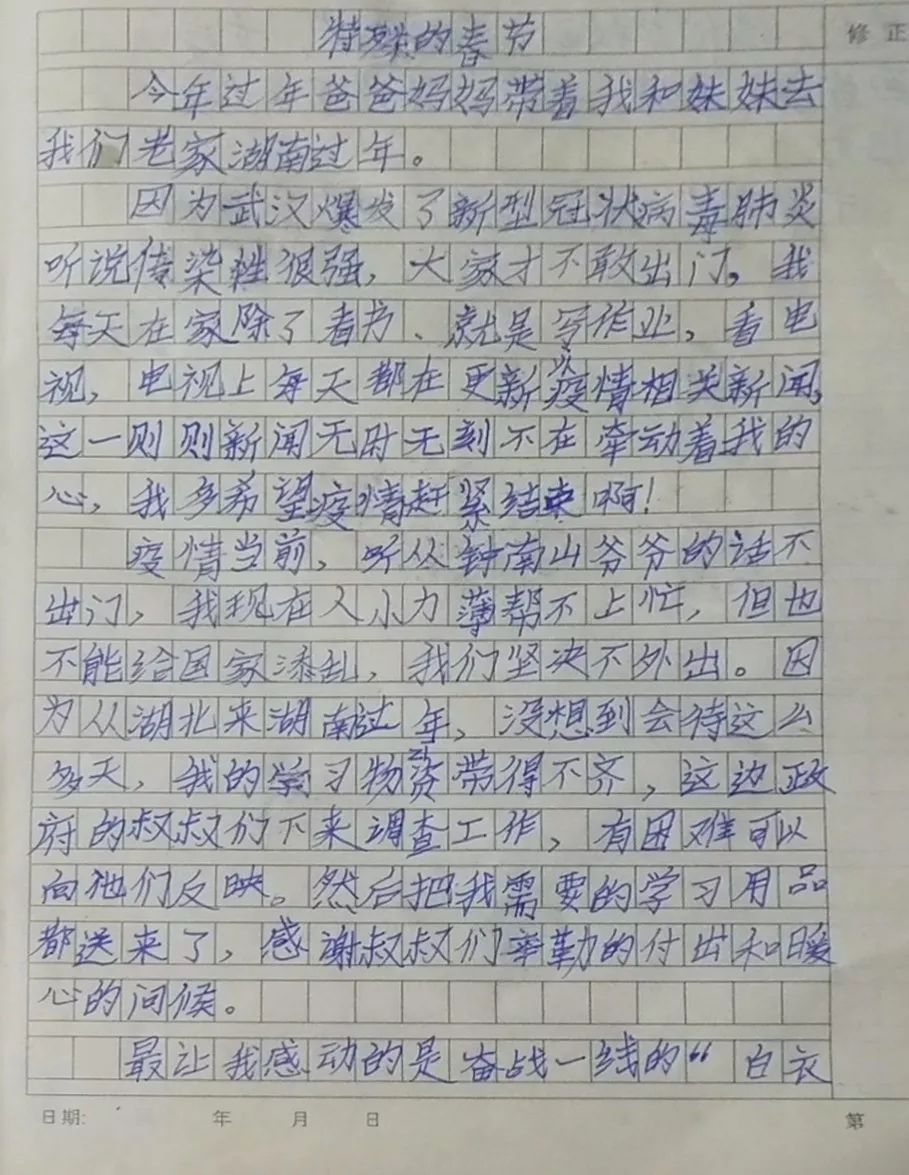 特殊的春节
修正
今年过年爸爸妈妈带着我和妹妹去
我们老家湖南过年。
因为武汉爆发了新型冠状病毒肺炎
听说传染性很强，大家才不敢出门。我
每天在家除了看书、就是写作业，看电
视，电视上每天都在更新疫情相关新闻，
这一则则新闻无时无刻不在牵动着我的
心，我多希望疫情赶紧结束啊！
疫情当前，听从钟南山爷爷的话不
出门，我现在人小力薄帮不上忙，但也
不能给国家添乱，我们坚决不外出。因
为从湖北来湖南过年，没想到会待这么
多天，我的学习物资带得不齐，这边政
府的叔叔们下来调查工作，有困难可以
向他们反映。然后把我需要的学习用品
都送来了，感谢叔叔们辛勤的付出和暖
心的问候。
最让我感动的是奋战一线的“白衣
日期: 年 月 日 第